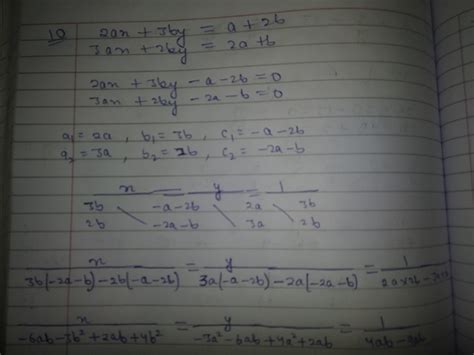 10 2ax + 3by = a + 2b
3ax + 2by = 2a + b
2ax + 3by - a - 2b = 0
3ax + 2by - 2a - b = 0
a₁ = 2a , b₁ = 3b , c₁ = -a - 2b
a₂ = 3a , b₂ = 2b , c₂ = -2a - b
x = y = 1
3b -a-2b 2a 3b
2b -2a-b 3a 2b
x = y = 1
3b(-2a-b) - 2b(-a-2b) 3a(-a-2b) - 2a(-2a-b) 2a×2b -
x = y = 1
-6ab - 3b² + 2ab + 4b² -3a² - 6ab + 4a² + 2ab 4ab - 9ab